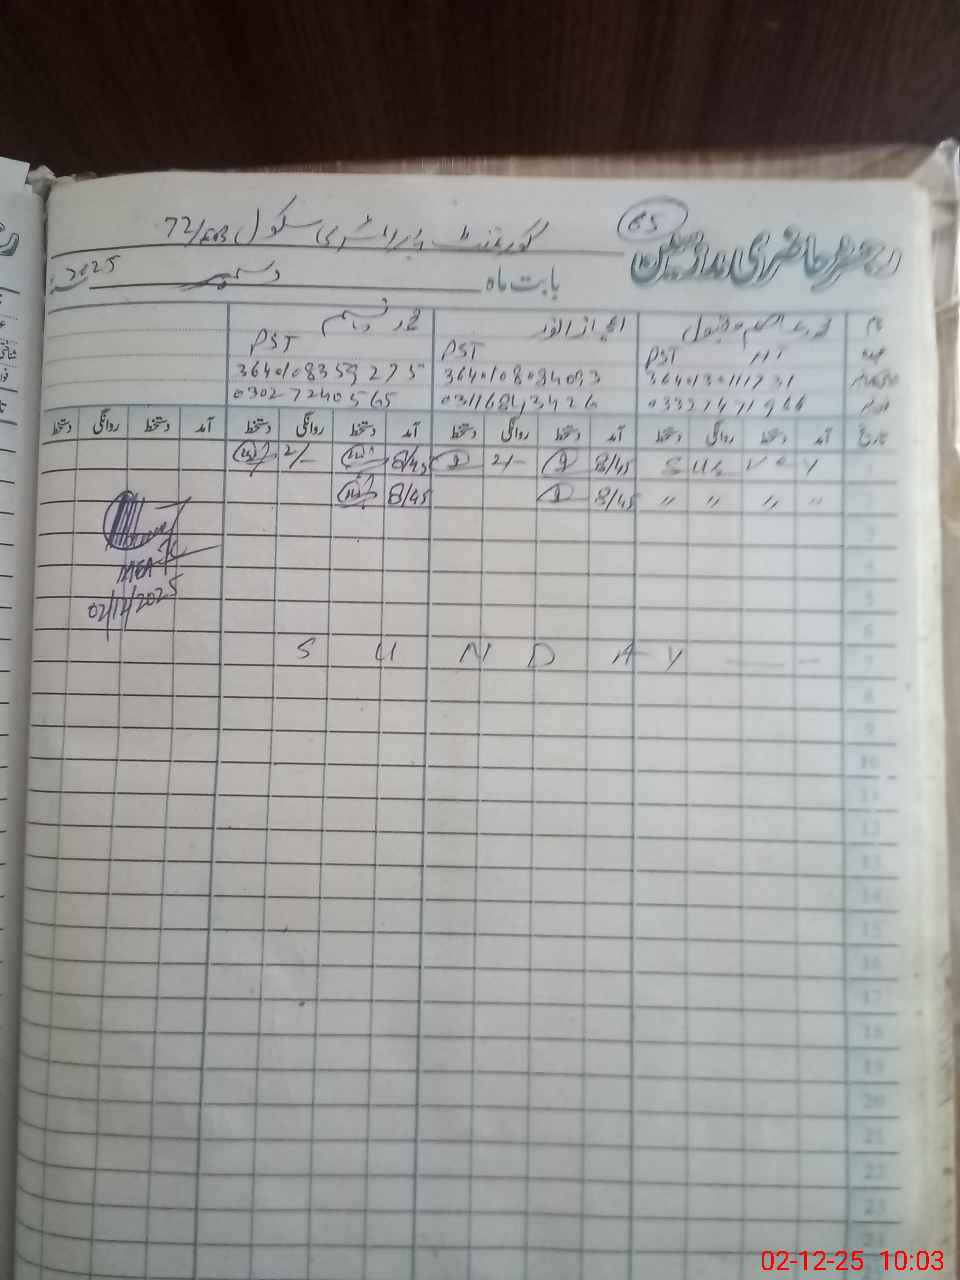 65
رجسٹر حاضری ملازمین
گورنمنٹ پرائمری سکول 72/EB
بابت ماہ دسمبر 2025
نام محمد اسلم مقبول اعجاز انور محمد وسیم
عہدہ PST HT PST PST
3640108359275
03027240565 03116843426
تاریخ آمد دستخط روانگی دستخط آمد دستخط روانگی دستخط آمد دستخط روانگی دستخط آمد دستخط روانگی دستخط
1 8/45 2/- 8/45 2/-
2 " " " " 8/45 8/45
3
4
5
6
7 S U N D A Y
8
9
10
11
12
13
14
15
16
17
18
19
20
21
22
23
24
MEA
02/12/2025
02-12-25 10:03